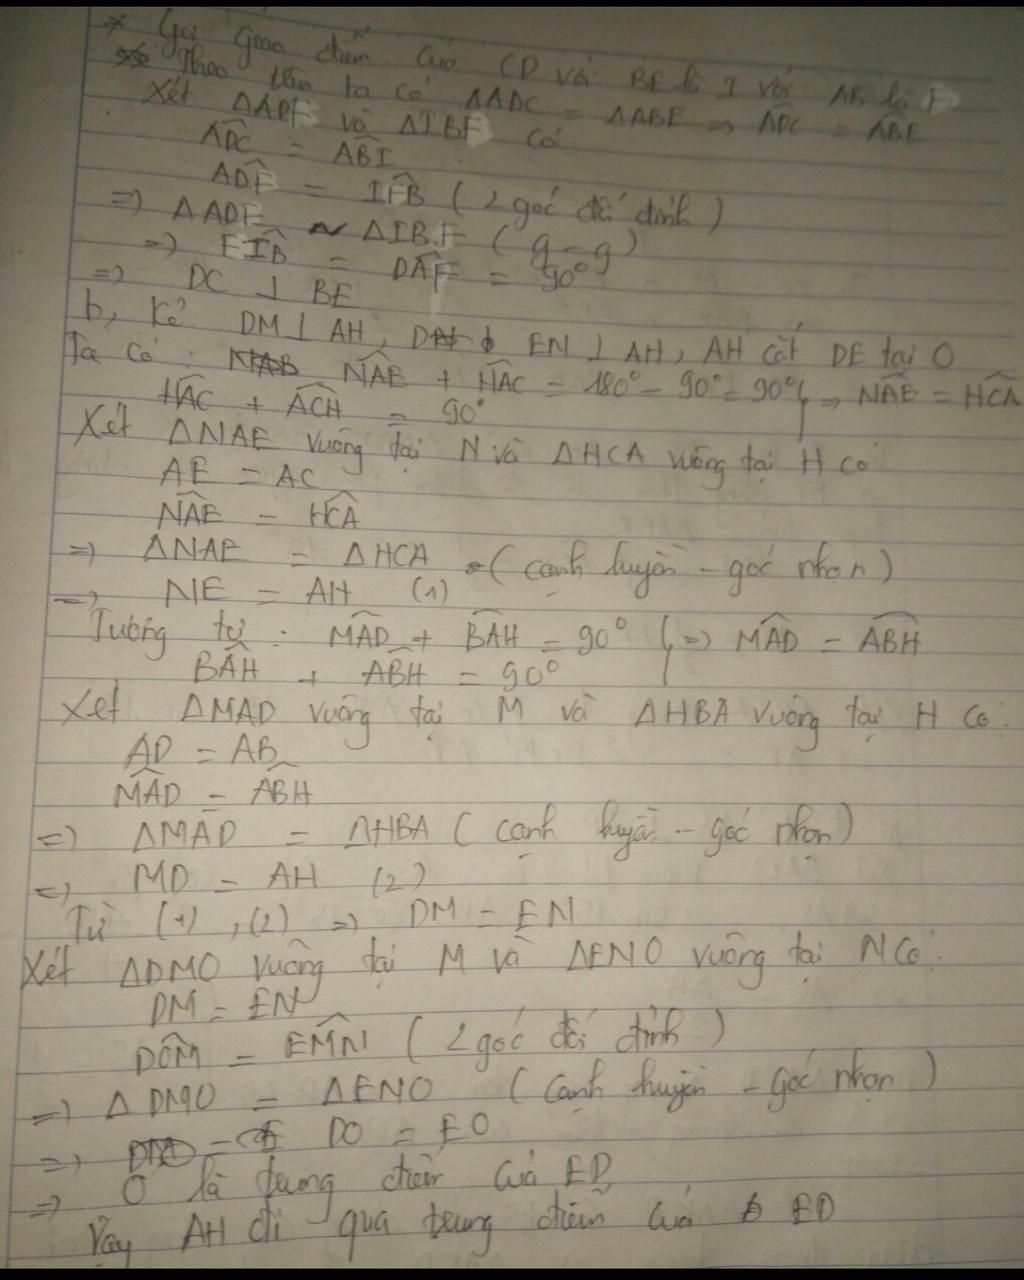 * Gọi giao điểm của CD với BE là I với AB là F
Theo trên ta có ΔADC = ΔABE => ADC^ = ABE^
Xét ΔADF và ΔIBF có
ADC^ = ABI^
ADF^ = IFB^ (2 góc đối đỉnh)
=> ΔADF ~ ΔIBF (g-g)
=> FIB^ = DAF^ = 90°
=> DC ⊥ BE
b, kẻ DM ⊥ AH, EN ⊥ AH, AH cắt DE tại O
Ta có: NAE^ + HAC^ = 180° - 90° = 90° } => NAE^ = HCA^
HAC^ + ACH^ = 90°
Xét ΔNAE vuông tại N và ΔHCA vuông tại H có
AE = AC
NAE^ = HCA^
=> ΔNAE = ΔHCA (cạnh huyền - góc nhọn)
=> NE = AH (1)
Tương tự: MAD^ + BAH^ = 90° } => MAD^ = ABH^
BAH^ + ABH^ = 90°
Xét ΔMAD vuông tại M và ΔHBA vuông tại H có:
AD = AB
MAD^ = ABH^
=> ΔMAD = ΔHBA (cạnh huyền - góc nhọn)
=> MD = AH (2)
Từ (1), (2) => DM = EN
Xét ΔDMO vuông tại M và ΔENO vuông tại N có:
DM = EN
DOM^ = EMN^ (2 góc đối đỉnh)
=> ΔDMO = ΔENO (cạnh huyền - góc nhọn)
=> DO = EO
=> O là trung điểm của ED
Vậy AH đi qua trung điểm của ED